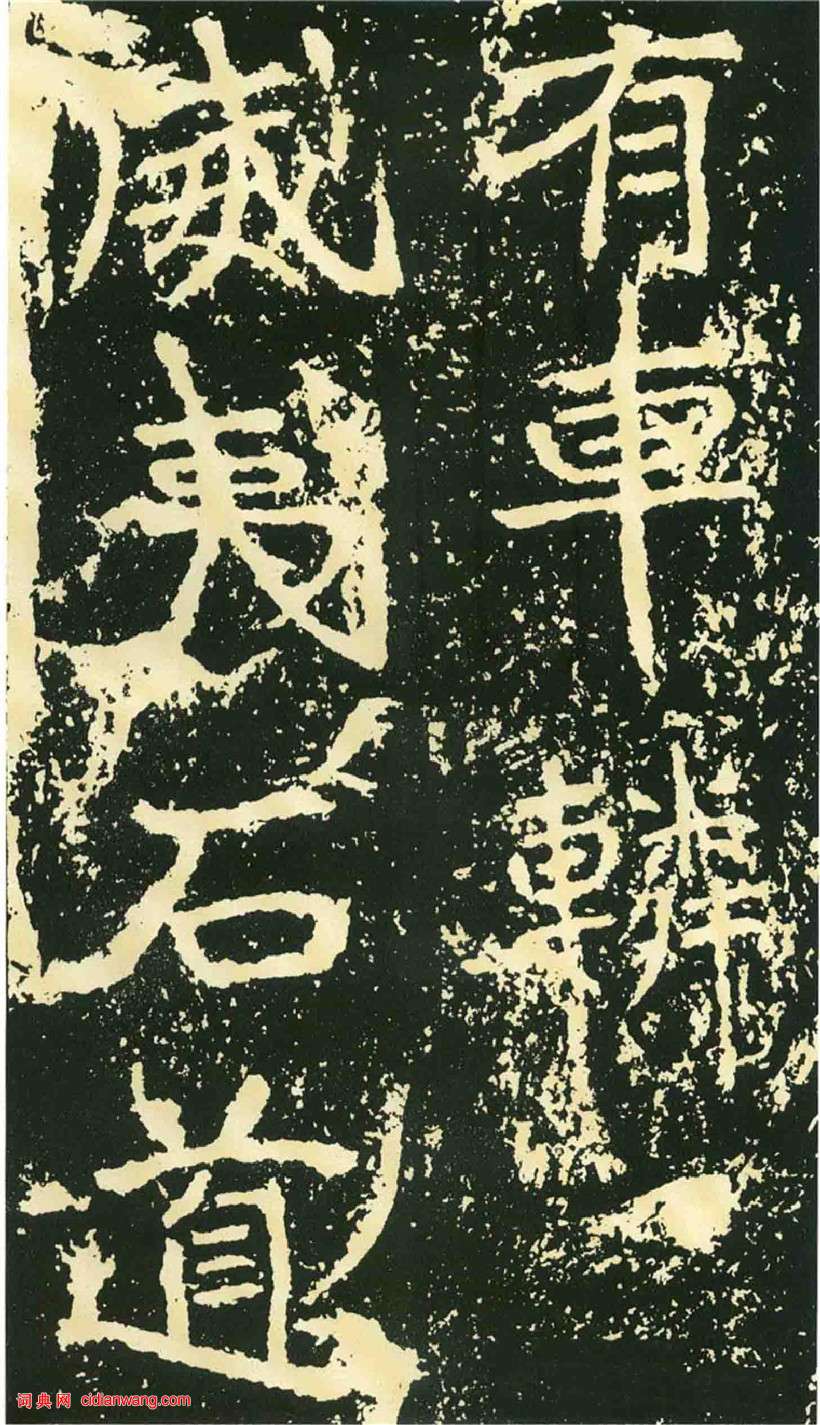 有車轔
威夷石道
词典网 cidianwang.com